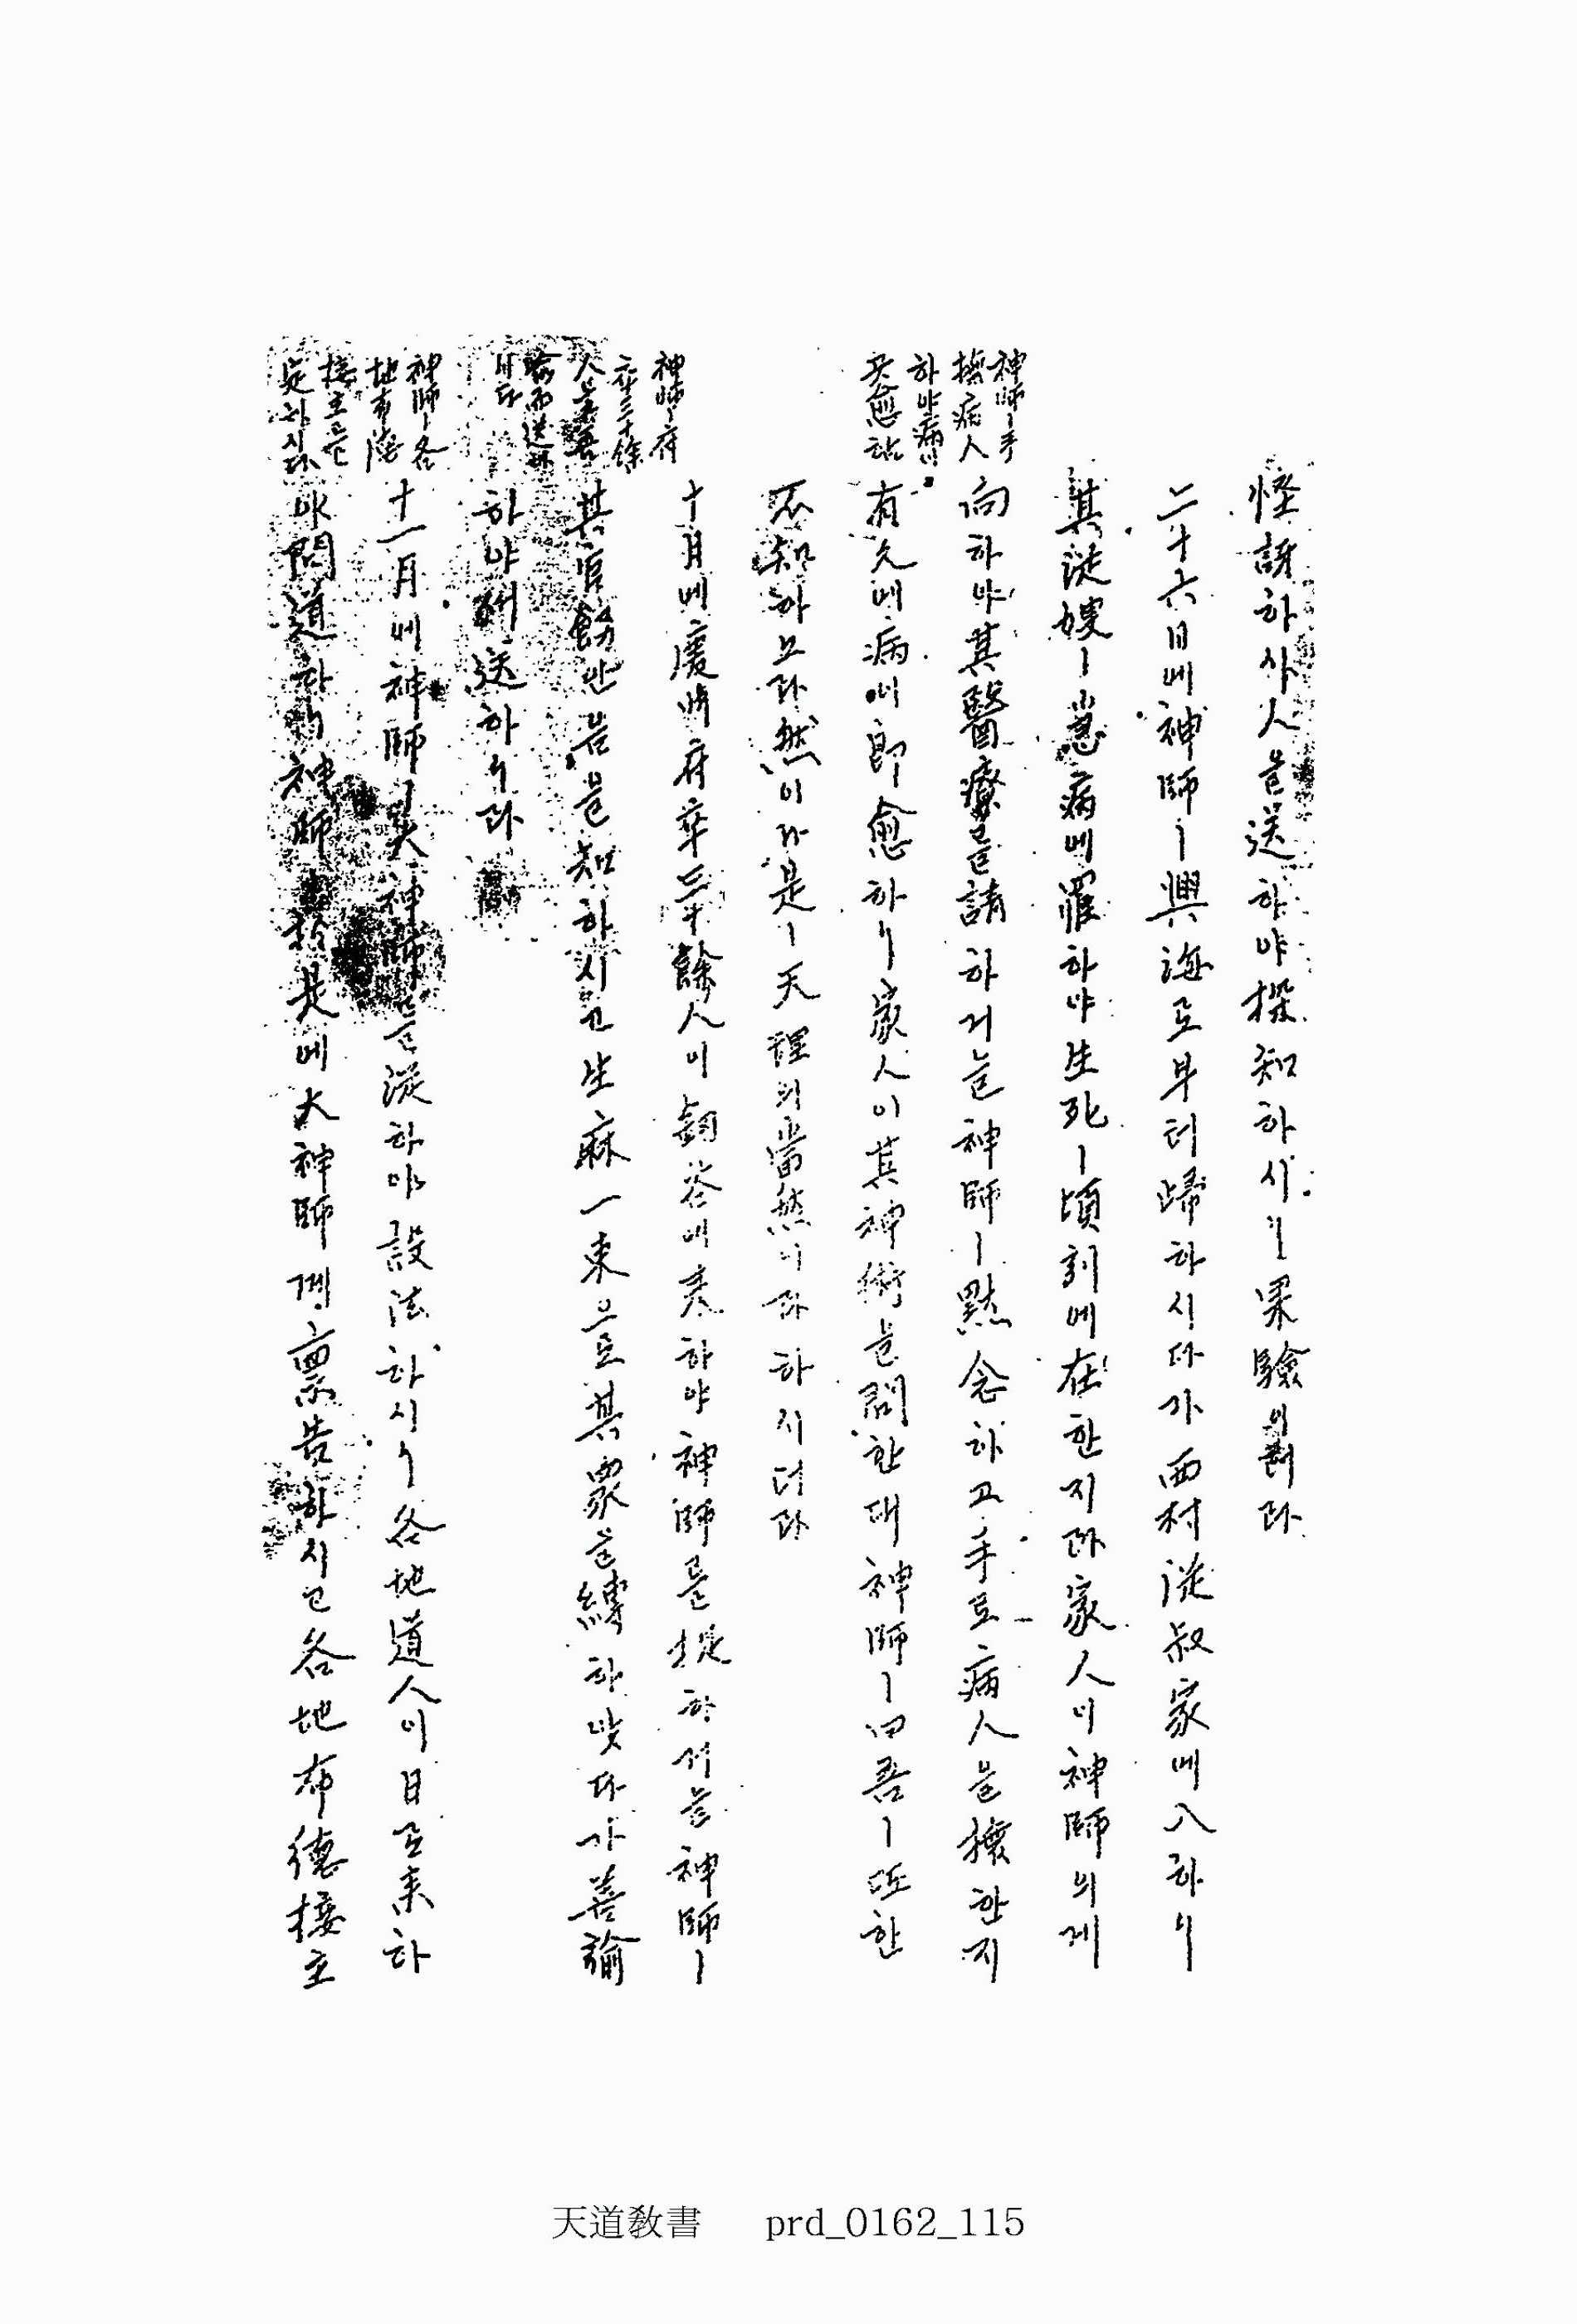 怪訝하사人을送하야探知하시니果驗의러라
二十六日에神師ㅣ興海로부터歸하시다가西村從叔家에入하니
其從嫂ㅣ患病에罹하야生死ㅣ頃刻에在한지라家人이神師의게
神師ㅣ手
撫病人
하야病이
灵愈하다
向하야其醫療를請하거늘神師ㅣ默念하고手로病人을撫한지
有久에病이卽愈하니家人이其神術을問한대神師ㅣ曰吾ㅣ또한
不知하노라然이나是ㅣ天理의當然이라하시더라
神師ㅣ府
卒三十餘
人을善
諭而送하
시다
十月에慶州府卒三十餘人이劒谷에來하야神師를捉하거늘神師ㅣ
其官飭안음을知하시고生麻一束으로其衆을縛하얏다가善諭
하야送하니라
神師ㅣ各
地布德
接主를
定하시다
十一月에神師ㅣ大神師를從하야設法하시니各地道人이日로來하
야問道하니神師ㅣ於是에大神師게稟告하시고各地布德接主
天道敎書 prd_0162_115